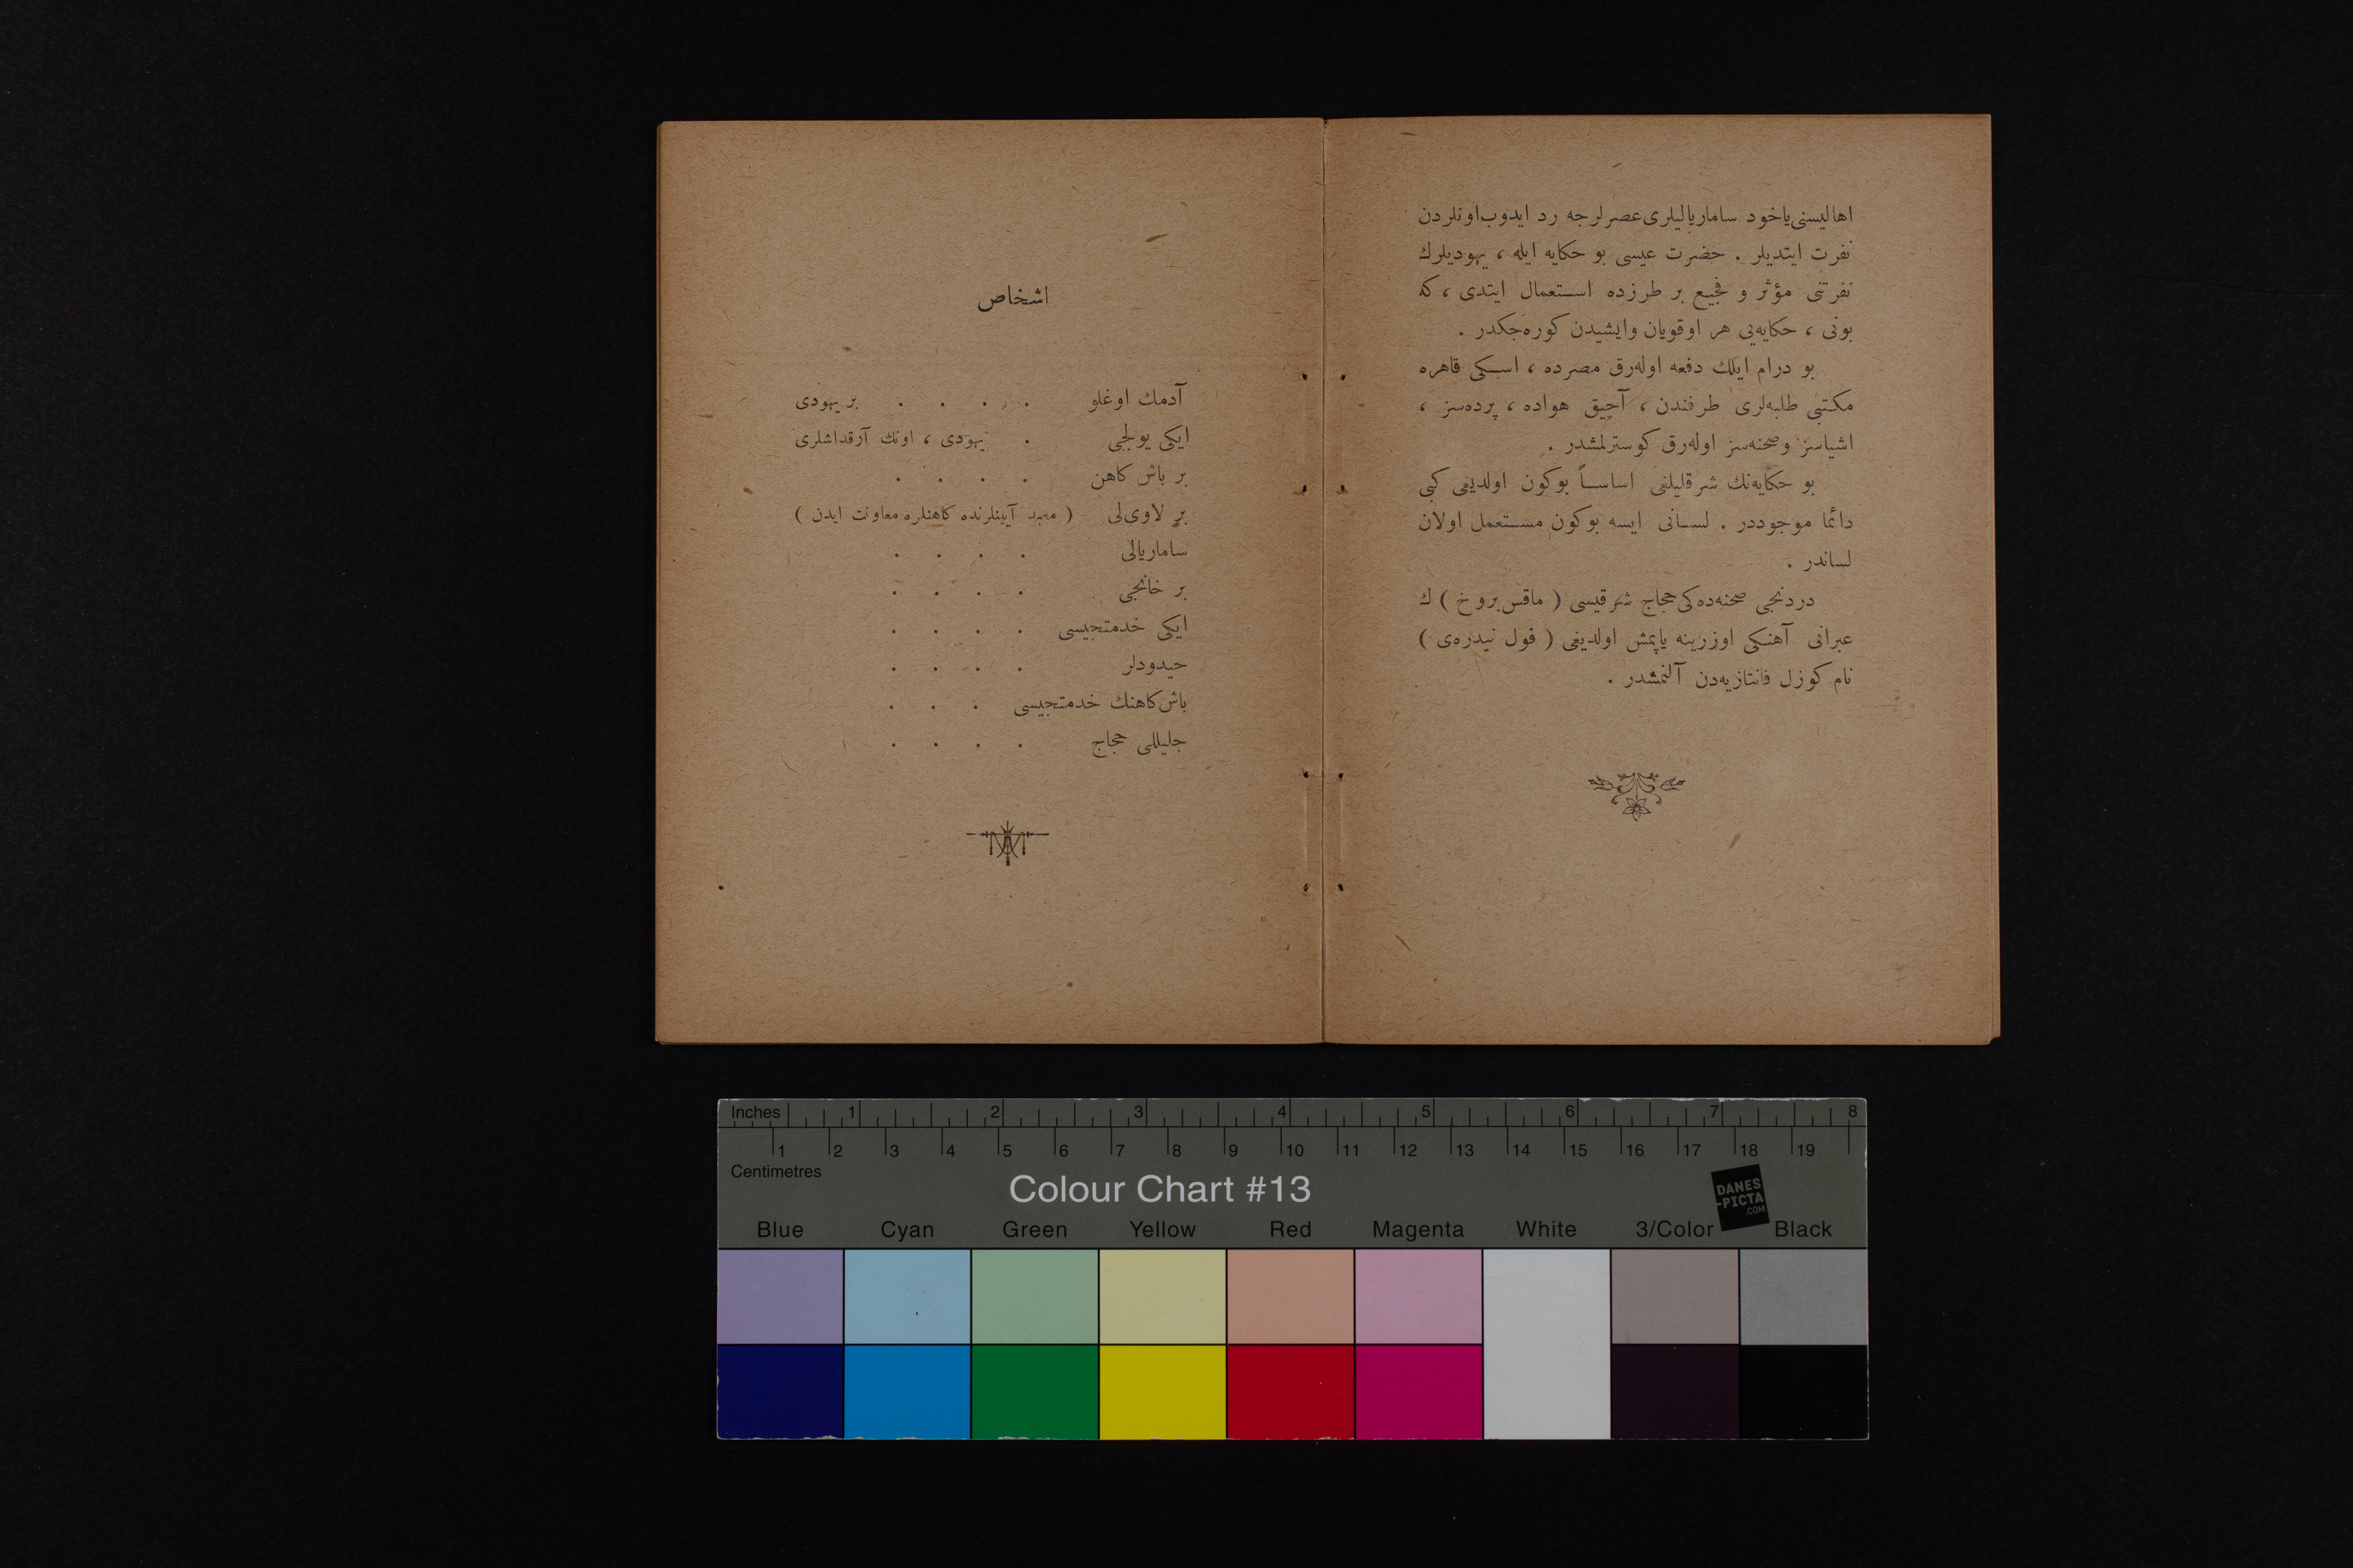 اهالیسنی یاخود ساماریالیلری عصرلرجه رد ایدوب اونلردن
نفرت ایتدیلر . حضرت عیسی بو حکایه ایله ، یهودیلرك
نفرتنی مؤثر و فجیع بر طرزده استعمال ایتدی ، که
بونی ، حکایه‌یی هر اوقویان وایشیدن کوره‌جکدر .
بو درام ایلك دفعه اوله‌رق مصرده ، اسکی قاهره
مکتبی طلبه‌لری طرفندن ، آچیق هواده ، پرده‌سز ،
اشیاسز وصحنه‌سز اوله‌رق کوسترلمشدر .
بو حکایه‌نك شرقلیلغی اساساً بوکون اولدیغی کبی
دائما موجوددر . لسانی ایسه بوکون مستعمل اولان
لساندر .
دردنجی صحنه‌ده‌کی حجاج شرقیسی ( ماقس بروخ ) ك
عبرانی آهنکی اوزرینه یاپمش اولدیغی ( قول نیدره‌ی )
نام کوزل فانتازیه‌دن آلنمشدر .
اشخاص
آدمك اوغلو . . . . بر یهودی
ایکی یولجی . یهودی ، اونك آرقداشلری
بر باش کاهن . . . .
بر لاوی‌لی ( معبد آیینلرنده کاهنلره معاونت ایدن )
ساماریالی . . . .
بر خانجی . . . .
ایکی خدمتجیسی . . . .
حیدودلر . . . .
باش‌کاهنك خدمتجیسی . . .
جلیللی حجاج . . . .
Inches 1 2 3 4 5 6 7 8
1 2 3 4 5 6 7 8 9 10 11 12 13 14 15 16 17 18 19
Centimetres
Colour Chart #13
DANES
-PICTA
.COM
Blue Cyan Green Yellow Red Magenta White 3/Color Black